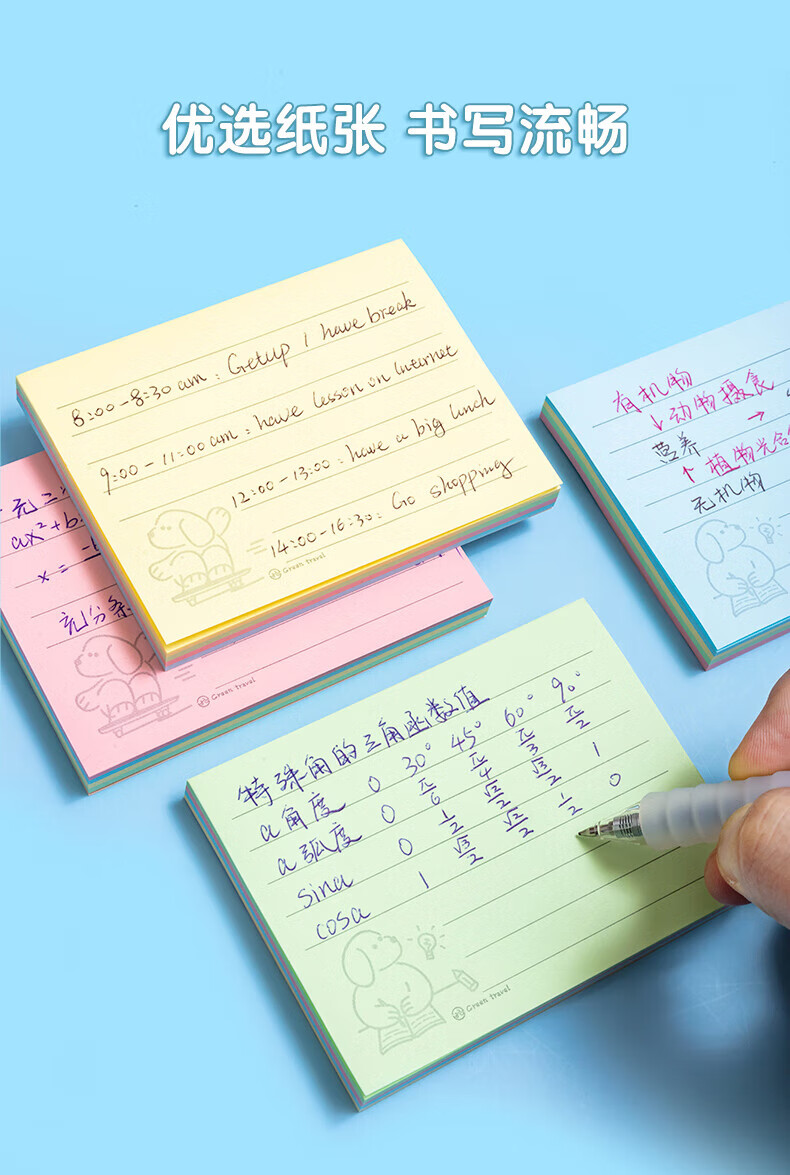 优选纸张 书写流畅
8:00-8:30 am : Getup / have break
9:00-11:00 am : have lesson on internet
12:00-13:00 : have a big lunch
14:00-16:30 : Go shopping
Green travel
ax²+b
x =
充分条
Green travel
有机物
↓动物摄食 →
营养
↑植物光合
无机物
特殊角的三角函数值
a角度 0 30° 45° 60° 90°
a弧度 0 π/6 π/4 π/3 π/2
sina 0 1/2 √2/2 √3/2 1
cosa 1 √3/2 √2/2 1/2 0
Green travel